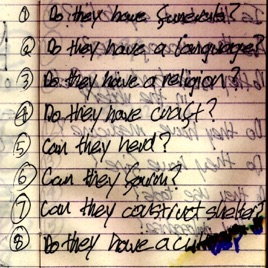 ① Do they have funerals?
② Do they have a language?
③ Do they have a religion?
④ Do they have craft?
⑤ Can they heal?
⑥ Can they
⑦ Can they construct shelter?
⑧ Do they have a